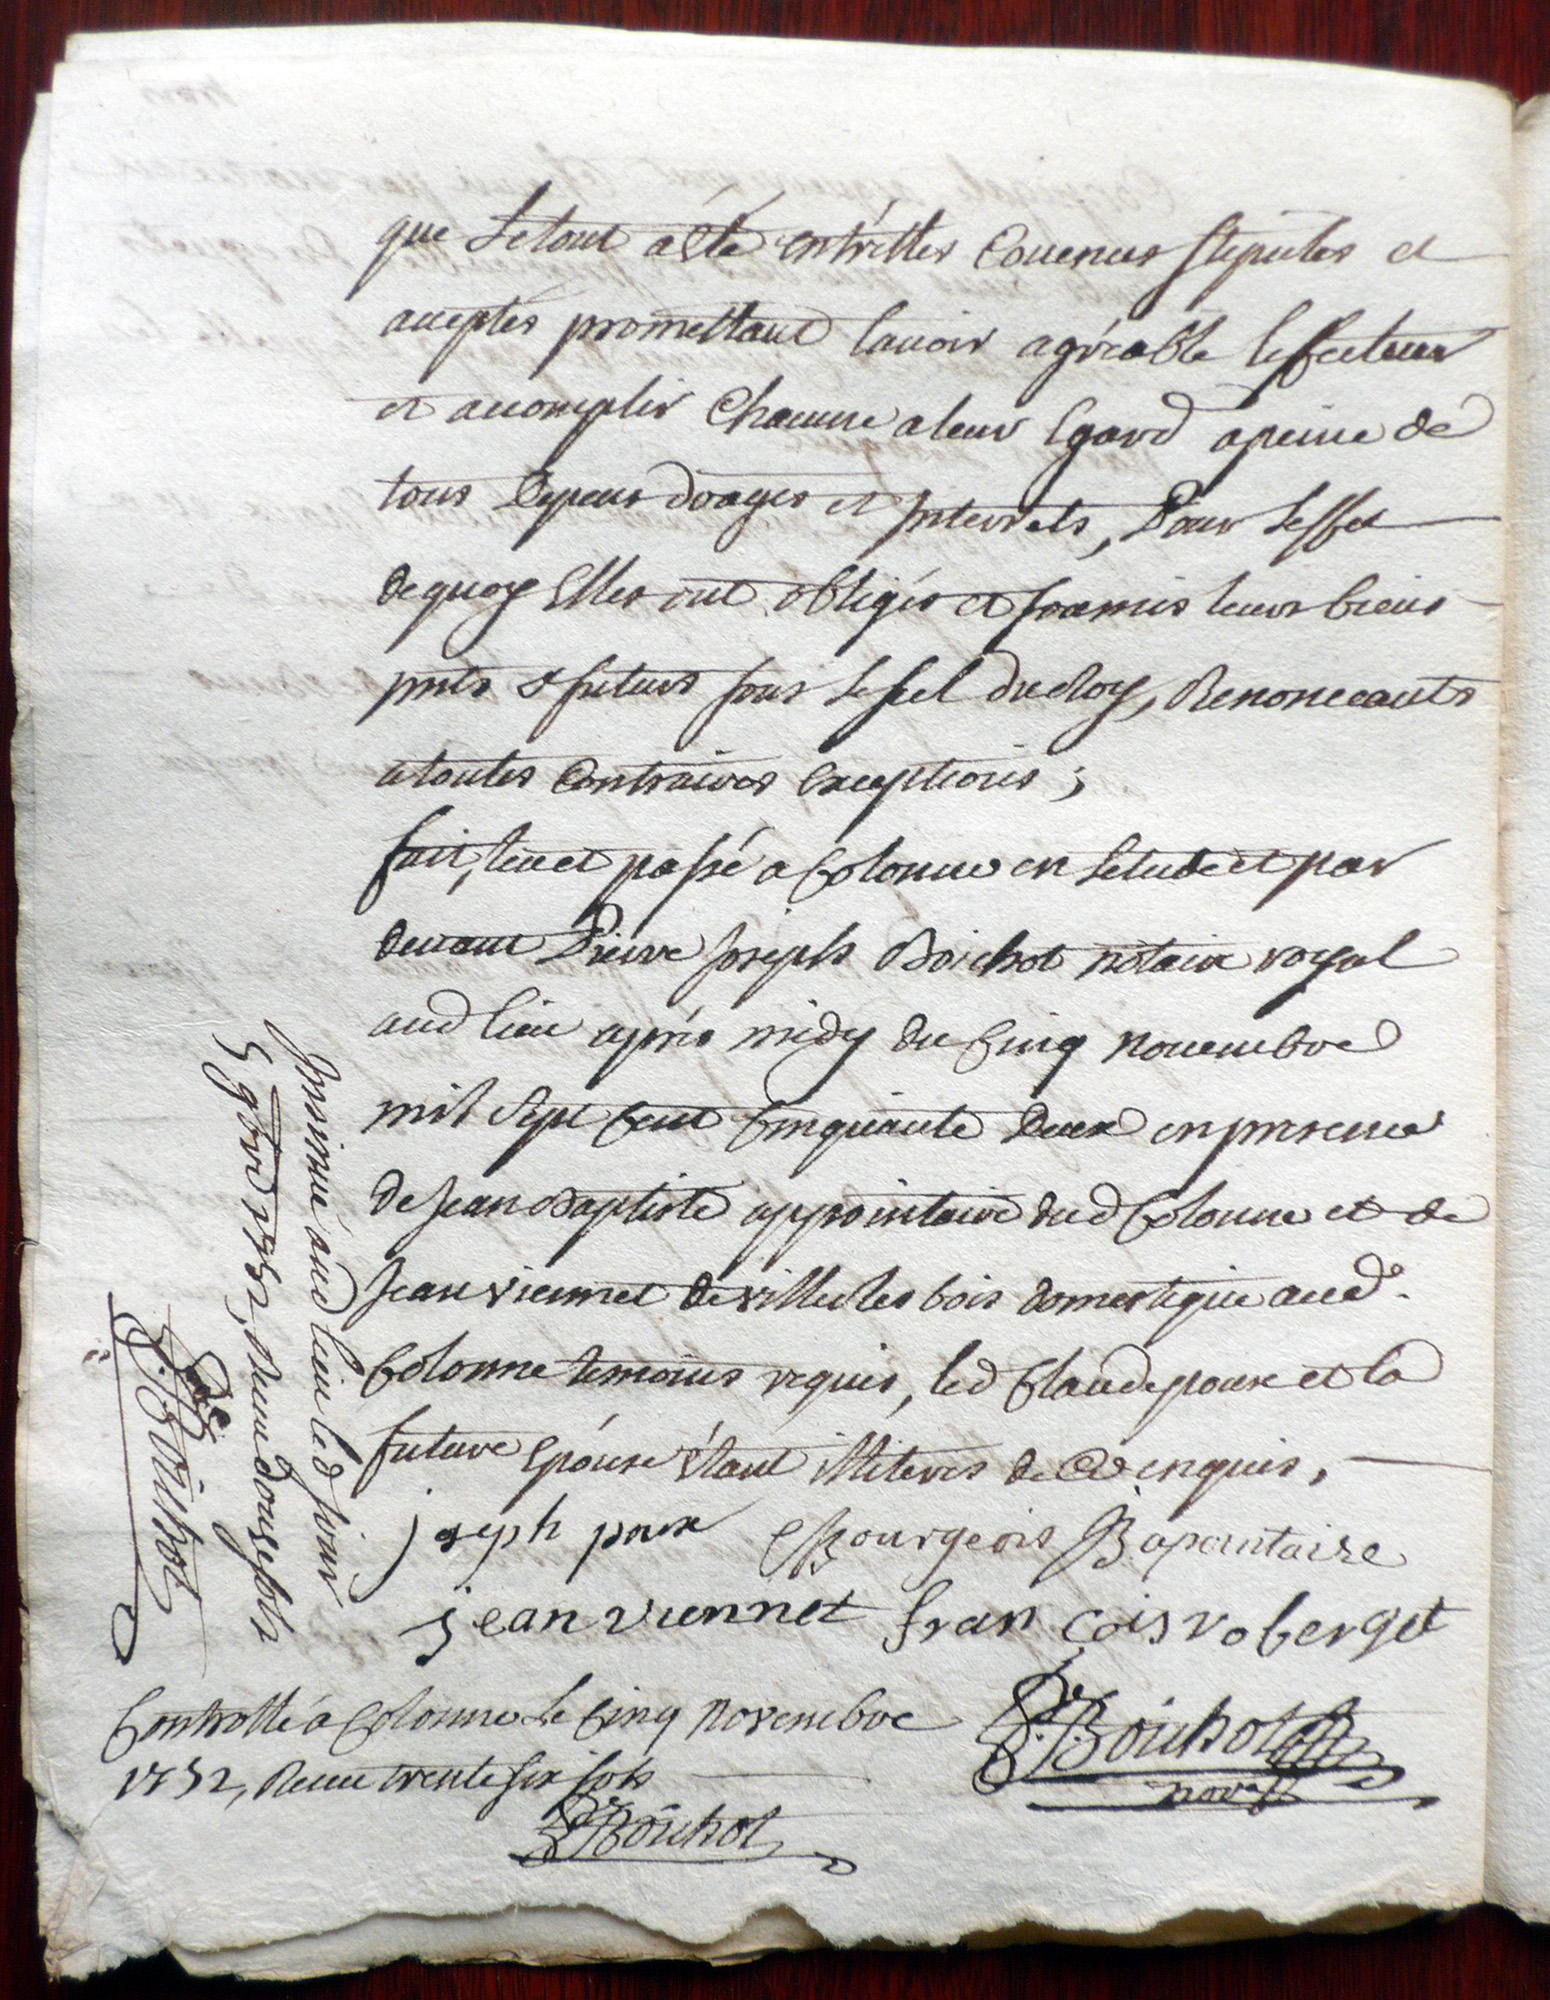 que Letout a été entrêttes Couenus stipules et
acceptés promettant Lauoir agréable Leffectuer
et accomplir Chacune a leur Egard a peine de
tous Depens doages et Interrets, Pour Leffet
dequoy Elles ont obligés et soumis leurs biens
pnts & futurs sous Le scel du Roy, Renonceants
a toutes Contraires Exceptions ;
fait, leu et passé a Colonne en Letude et par
deuant Pierre Joseph Boichot notaire royal
aud lieu après midy du Cinq nouembre
mil Sept Cent Cinquante deux en presence
de Jean Baptiste appointaire dud Colonne et de
Jean viennet de villers les bois domestique aud.
Colonne temoins requis, led Claude poux et la
future Epouse étant illiteres de Ce enquis,
joseph poux Bourgeois B apointaire
jean viennet fran çois roberget
P. J. Boichot
nore
Controllé a Colonne Le Cinq Novembre
1752, Receu trente six sols
P. J. Boichot
Insinué aud lieu led jour
5 9bre 1752, Receu douze sols
P. J. Boichot